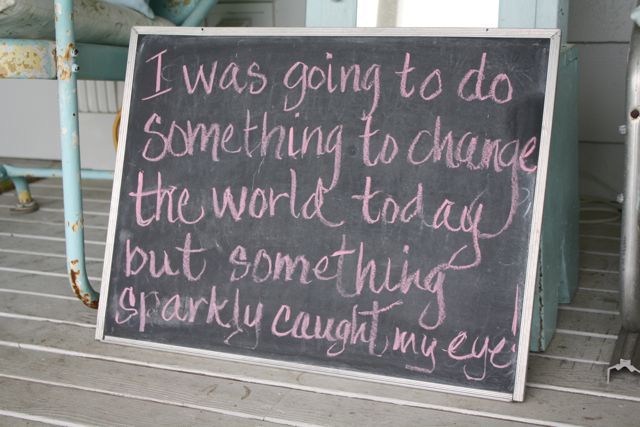 I was going to do
something to change
the world today
but something
sparkly caught my eye!